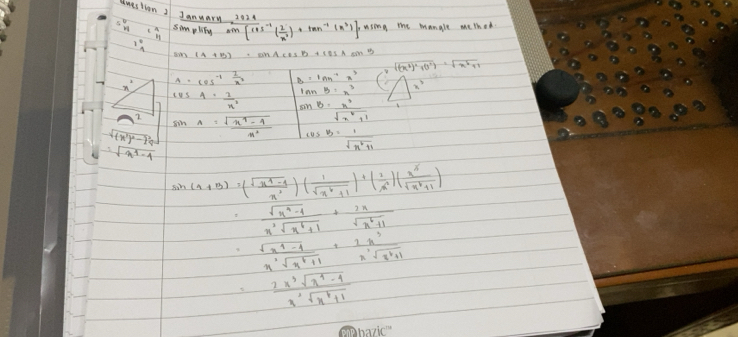 Question 2 January 2024
Simplify sin [cos⁻¹ (2/x²) + tan⁻¹ (x³)], using the triangle method.
sin (A + B) = sin A cos B + cos A sin B
√((x³)² + 1²) = √x⁶+1
A = cos⁻¹ 2/x²
cos A = 2/x²
sin A = √x⁴-4 / x²
x²
2
√(x²)²-2²
= √x⁴-4
B = tan⁻¹ x³
tan B = x³
sin B = x³ / √x⁶+1
cos B = 1 / √x⁶+1
x³
1
sin (A + B) = (√x⁴-4 / x²) (1 / √x⁶+1) + (2 / x²) (x³ / √x⁶+1)
= √x⁴-4 / x² √x⁶+1 + 2x / √x⁶+1
= √x⁴-4 / x² √x⁶+1 + 2x³ / x² √x⁶+1
= 2x³ √x⁴-4 / x² √x⁶+1
POP bazic